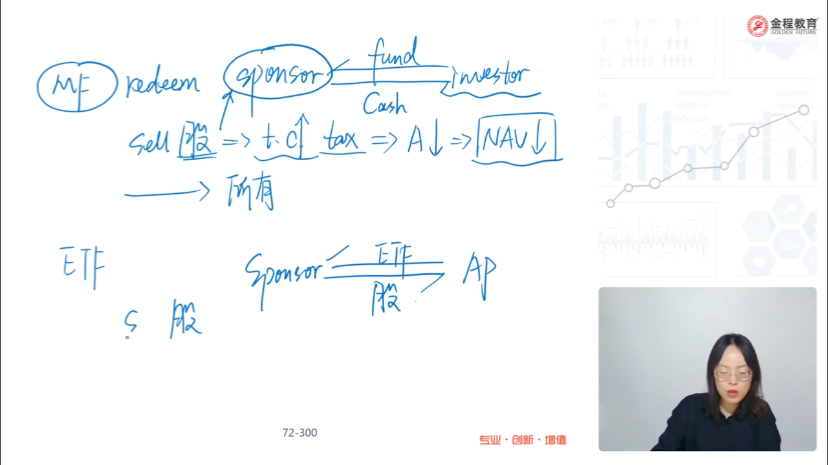 金程教育
GOLDEN FUTURE
fund
MF redeem sponsor investor
Cash
sell 股 => t.c↑ tax => A↓ => NAV↓
→ 所有
ETF
Sponsor ETF AP
股
S 股
72-300
专业·创新·增值